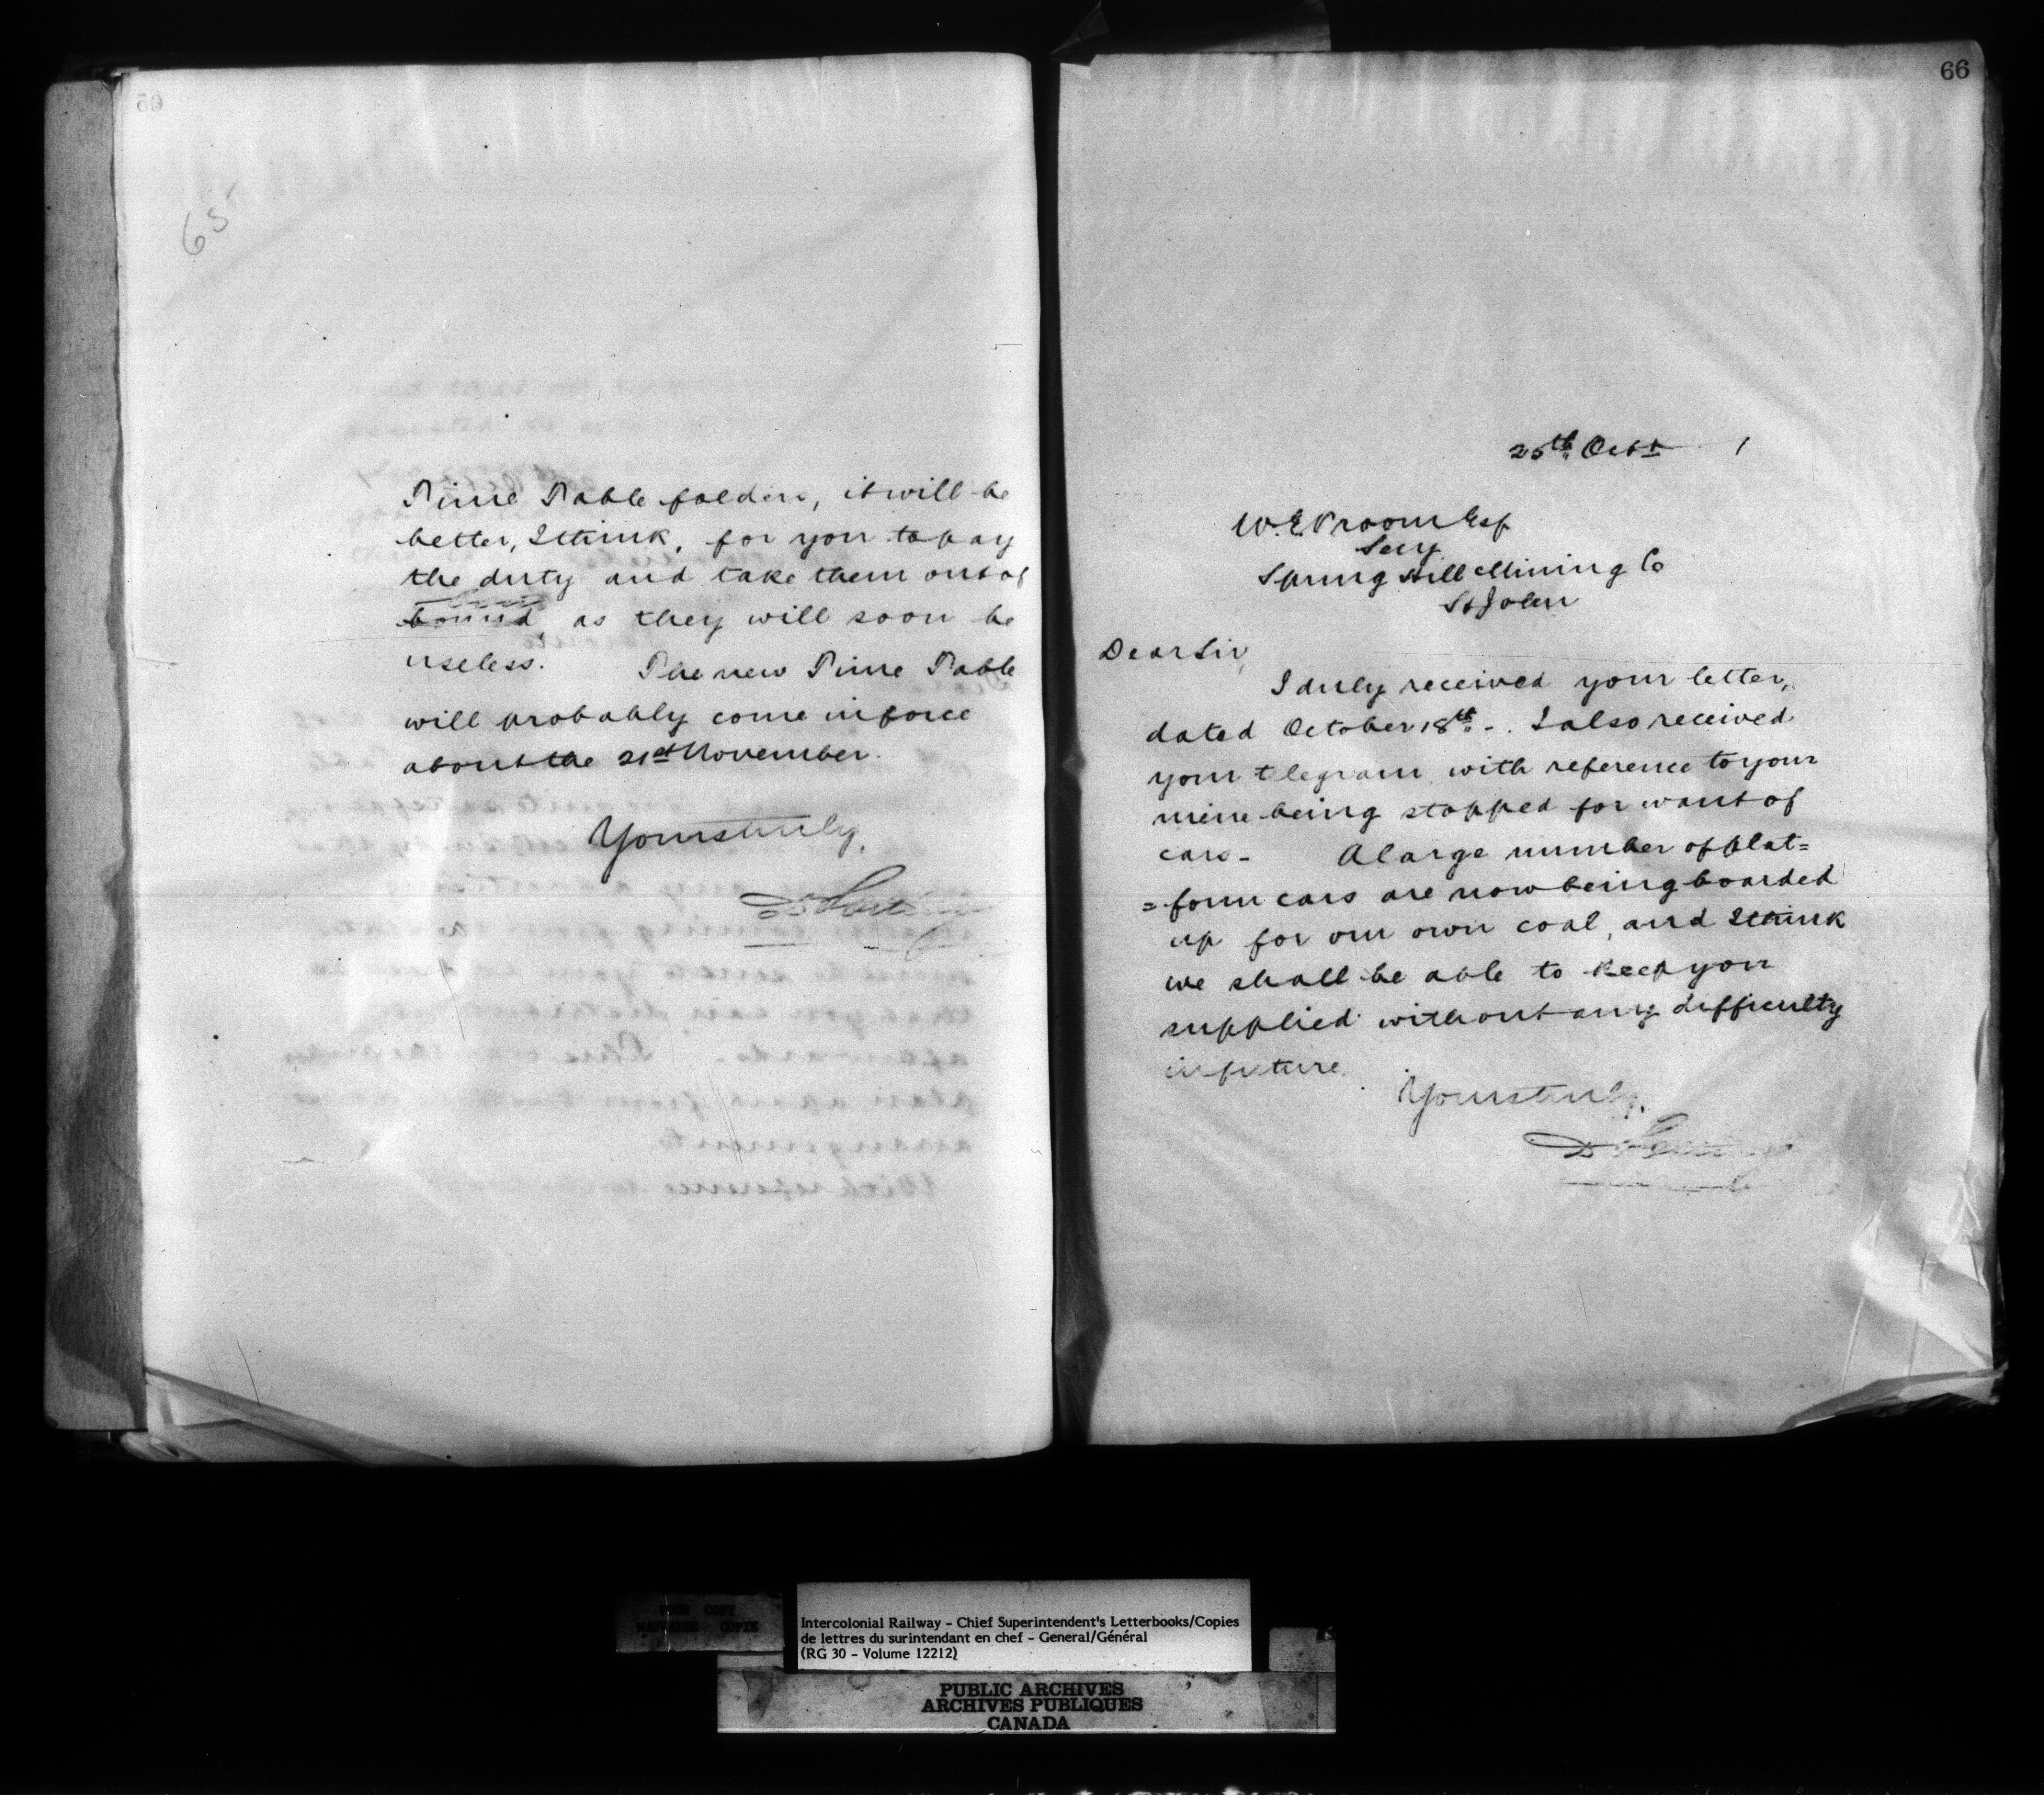 65
Time Table folders, it will be
better, I think, for you to pay
the duty and take them out of
bound, as they will soon be
useless. The new Time Table
will probably come in force
about the 21st November.
Yours truly,
66
25th Octr 1
W. E. Vroom Esq
Secy
Spring Hill Mining Co
St John
Dear Sir,
I duly received your letter,
dated October 18th -. I also received
your telegram with reference to your
mine being stopped for want of
cars - A large number of plat=
=form cars are now being boarded
up for our own coal, and I think
we shall be able to keep you
supplied without any difficulty
in future.
Yours truly,
POOR COPY
MAUVAISE COPIE
Intercolonial Railway - Chief Superintendent's Letterbooks/Copies
de lettres du surintendant en chef - General/Général
(RG 30 - Volume 12212)
PUBLIC ARCHIVES
ARCHIVES PUBLIQUES
CANADA